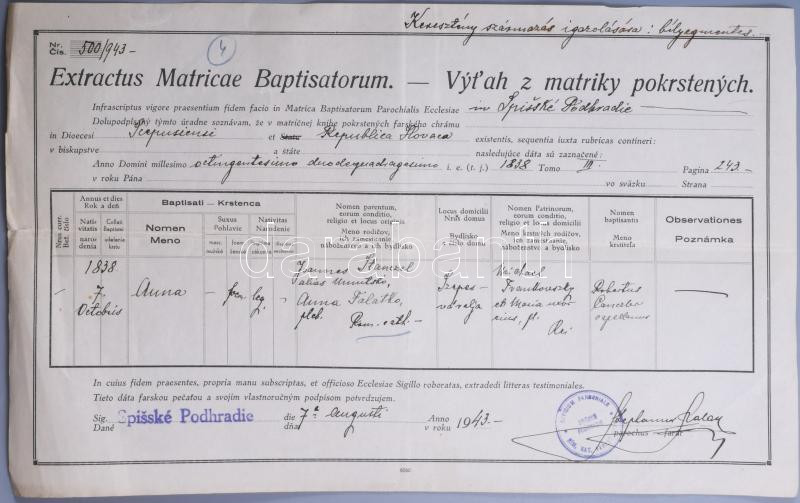 Keresztény származás igazolására: bélyegmentes.
Nr. Čís. 500/943-
4
Extractus Matricae Baptisatorum. — Výťah z matriky pokrstených.
Infrascriptus vigore praesentium fidem facio in Matrica Baptisatorum Parochialis Ecclesiae in Spišské Podhradie
Dolupodpísaný týmto úradne soznávam, že v matričnej knihe pokrstených farského chrámu
in Dioecesi Scepusiensi et Statu Republica Slovaca existentis, sequentia iuxta rubricas contineri:
v biskupstve a štáte nasledujúce dáta sú zaznačené:
Anno Domini millesimo octingentesimo duodequadragesimo i. e. (t. j.) 1838 Tomo III. Pagina 243.-
v roku Pána vo sväzku Strana
Nrus curr. Bež. číslo
Annus et dies
Rok a deň
Nativitatis
narodenia
Collati Baptismi
udelenia krstu
Baptisati — Krstenca
Nomen
Meno
Sexus
Pohlavie
masc.
mužské
fem.
ženské
Nativitas
Narodenie
Nomen parentum,
eorum conditio,
religio et locus originis
Meno rodičov,
ich zamestnanie,
náboženstvo a ich bydlisko
Locus domicilii
Nrus domus
Bydlisko
číslo domu
Nomen Patrinorum,
eorum conditio,
religio et locus domicilii
Meno krstných rodičov,
ich zamestnanie,
náboženstvo a bydlisko
Nomen
baptisantis
Meno
krstiteľa
Observationes
Poznámka
1838
7
Octobris
Anna
fem.
leg.
Joannes Stanczel
Anna Falatko,
pleb.
Rom. cath. -
Szepes-
váralja
Michael
et Maria
Robertus
darabanth
In cuius fidem praesentes, propria manu subscriptas, et officioso Ecclesiae Sigillo roboratas, extradedi litteras testimoniales.
Tieto dáta farskou pečaťou a svojím vlastnoručným podpisom potvrdzujem.
Sig. Spišské Podhradie die 7a Augusti Anno 1943.-
Dané dňa v roku
parochus — farár